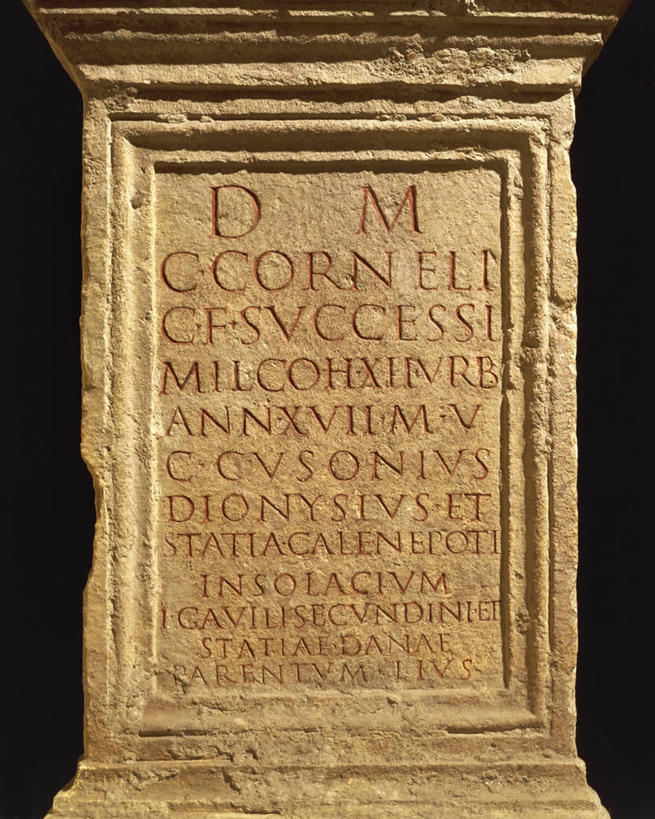 D M
C·CORNELI
C·F·SVCCESSI
MIL·COH·XII·VRB
ANN·XVII·M·V
C·CVSONIVS
DIONYSIVS·ET
STATIA·CALE·NEPOTI
INSOLACIVM
SECVNDINI·ET
STATIAE·DANAE
PARENTVM